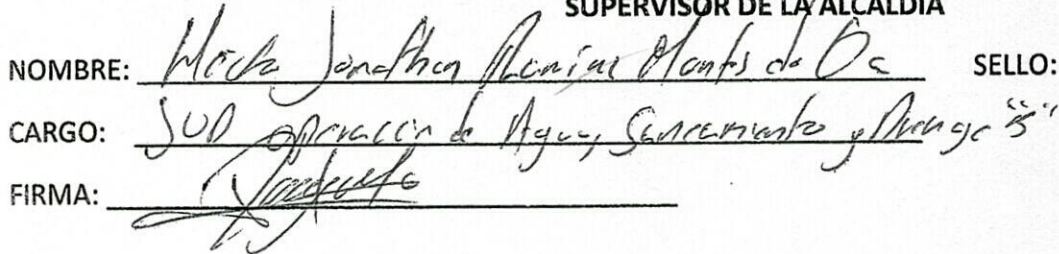 SUPERVISOR DE LA ALCALDÍA
NOMBRE: Jonathan Montes de Oca SELLO:
CARGO: JUD operación de Agua, Saneamiento y Drenaje "B"
FIRMA: